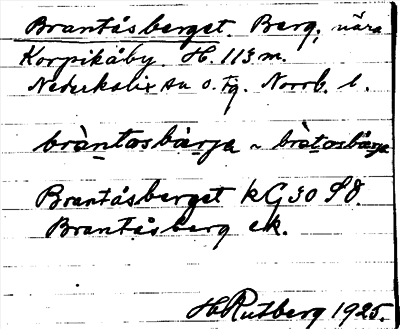 Brantåsberget. Berg, nära
Korpikåby. H. 113 m.
Nederkalix sn o. tg. Norrb. l.
bràntosbàrja ~ bràtosbàrja
Brantåsberget kG 30 SO
Brantåsberg ek.
H Rutberg 1925.